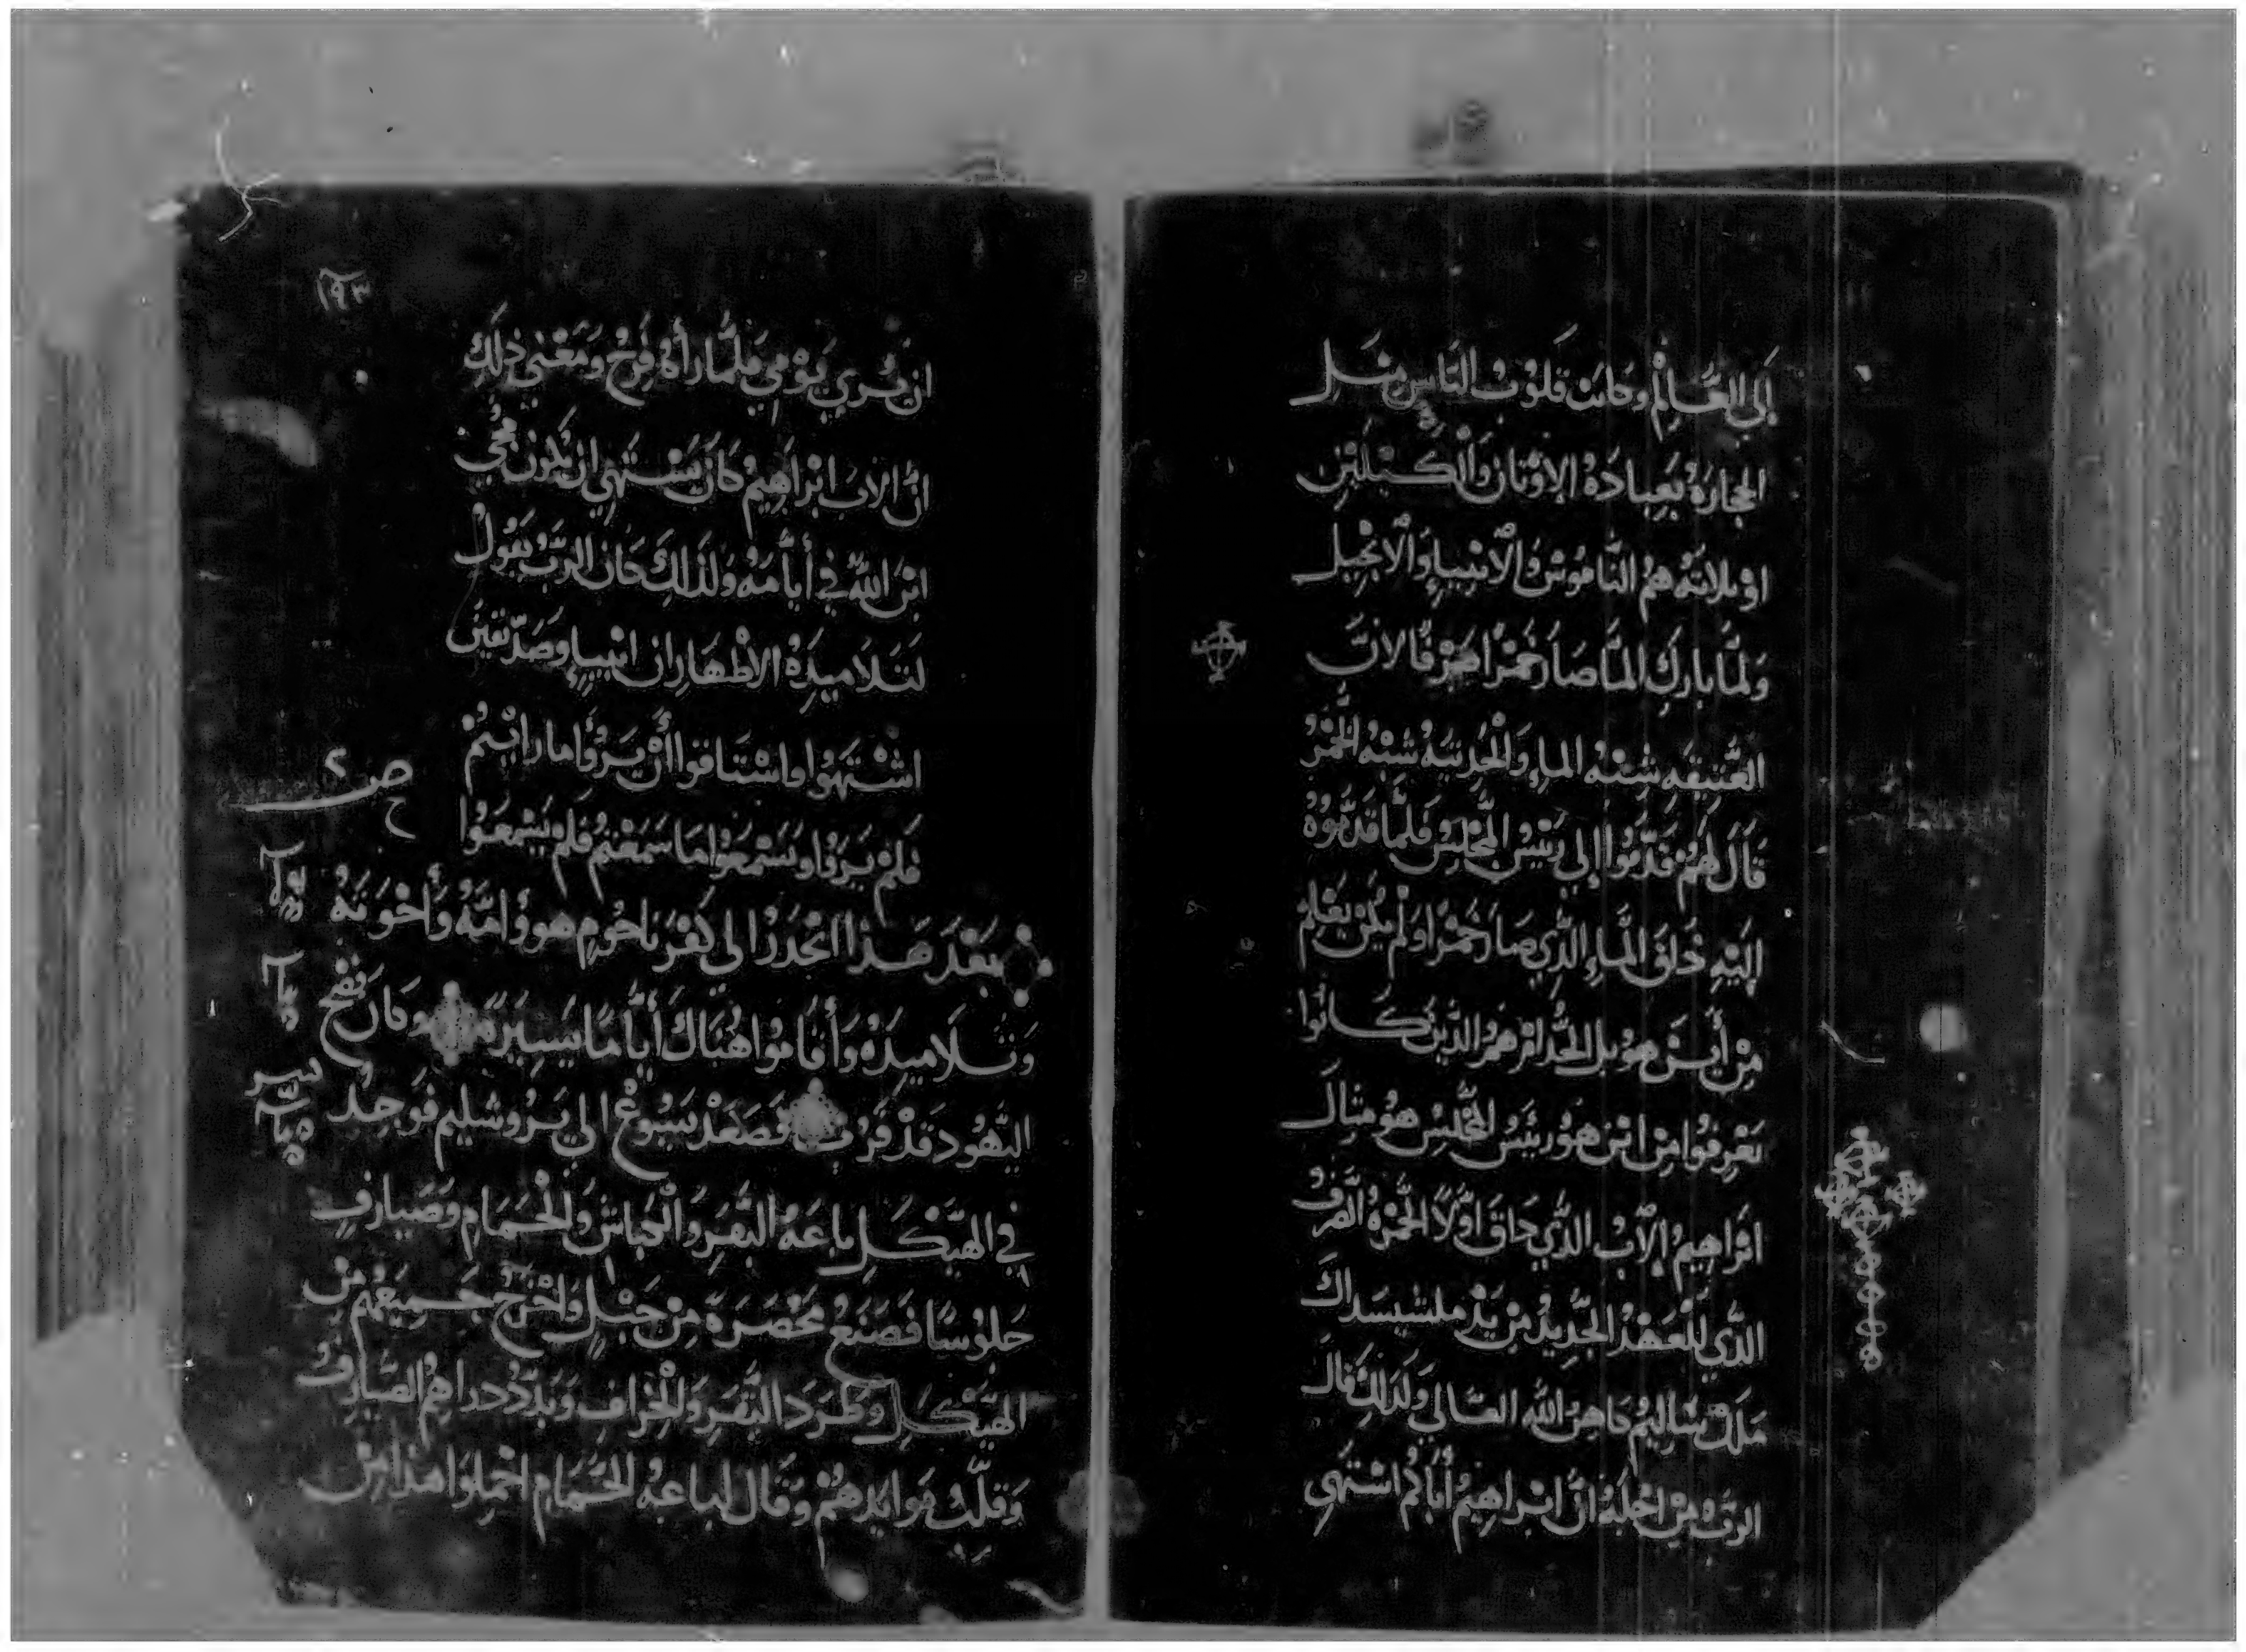 إلى العالم وكانت قلوب الناس مثل
الحجارة بعبادة الاوثان والكيلتين
او ثلاثه هم الناموس والانبياء والانجيل
ولما بارك الما صار خمرا صرفا لان
العتيقه شبه الماء والحديثه شبه الخمر
قال لهم قدموا إلى رئيس المجلس فلما قدموه
إليه ذاق الماء الذي صار خمرا ولم يكن يعلم
من أين هو بل الخدام هم الذين كانوا
يعرفوا من اين هو رئيس المجلس هو مثال
ابراهيم الاب الذي ذاق اولا الخمرة الصرف
الذي للعهد الجديد من يد ملشيسداك
ملك ساليم كاهن الله العالي ولذلك قال
الرب من اجله ان ابراهيم أباكم اشتهي
١٩٣
ان يري يومي فلما رأه فرح ومعني ذلك
ان الاب ابراهيم كان يشتهي ان يكون مجي
ابن الله في أيامه ولذلك كان الرب يقول
لتلاميذه الاطهار ان انبيا وصديقين
اشتهوا واشتاقوا أن يروا ما رايتم
فلم يروا ويسمعوا ما سمعتم فلم يسمعوا
بعد هذا انحدر الي كفرناحوم هو وأمه وأخوته
وتلاميذه وأقاموا هناك أياما يسيرة وكان فصح
اليهود قد قرب فصعد يسوع الي يروشليم فوجد
في الهيكل باعة البقر والكباش والحمام وصيارف
جلوسا فصنع مخصرة من حبل واخرج جميعهم من
الهيكل وطرد البقر والخراف وبدد دراهم الصيارف
وقلب موايدهم وقال لباعة الحمام احملوا هذا من